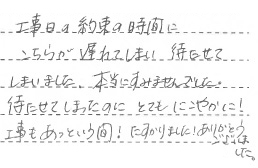 工事日の約束の時間に
こちらが遅れてしまい 待たせて
しまいました。本当にすみませんでした。
待たせてしまったのに とても にこやかに!
工事もあっという間! たすかりました!ありがとう
ございました。